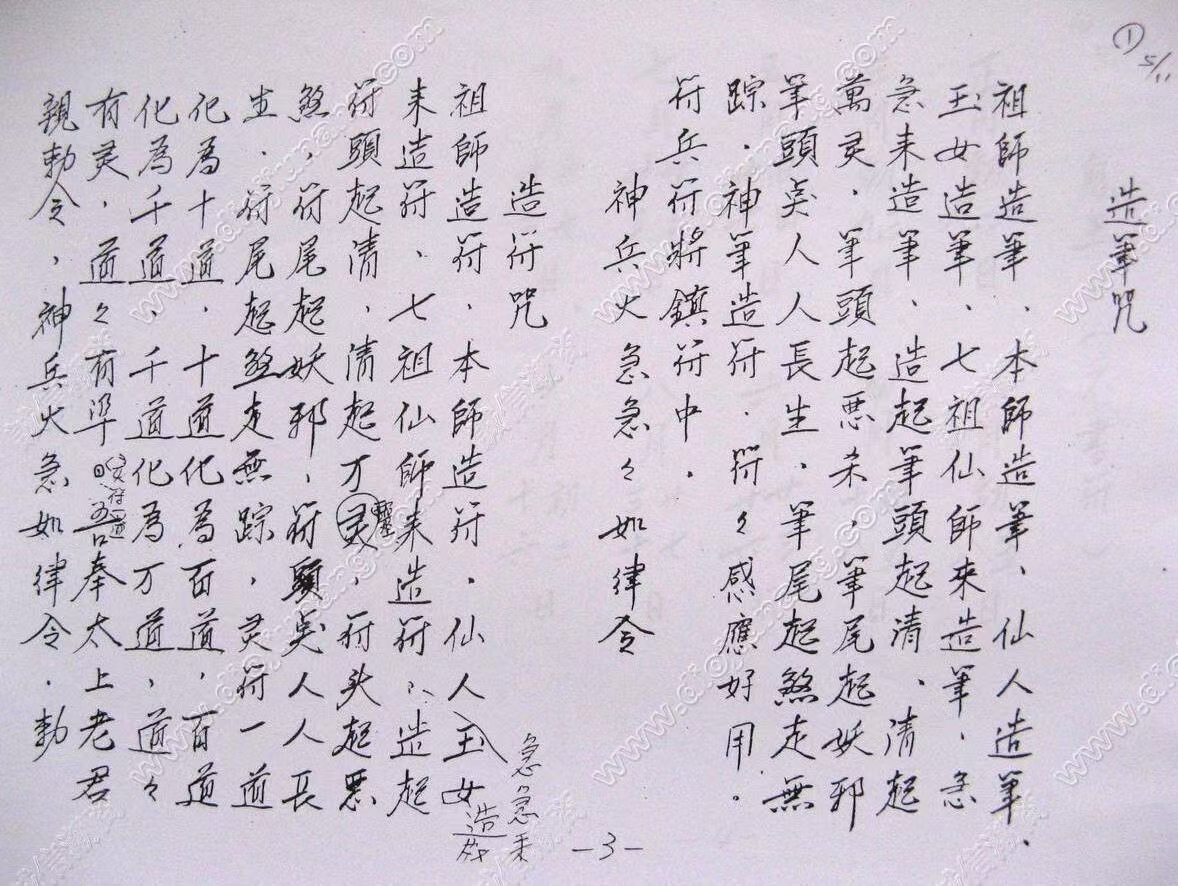 ① 5/11
造筆咒
祖師造筆、本師造筆、仙人造筆、
玉女造筆、七祖仙師來造筆、急
急来造筆、造起筆頭起清、清起
萬灵，筆頭起悪杀，筆尾起妖邪
筆頭矣人人長生，筆尾起煞走無
踪．神筆造符．符々感應好用．
符兵符將鎮符中．
神兵火急急々如律令
造符咒
祖師造符．本師造符．仙人玉女
急急来
造符
来造符、七祖仙師来造符、造起
符頭起清，清起才灵，符头起悪
煞，符尾起妖邪，符頭矣人人長
生．符尾起煞走無踪，灵符一道
化為十道．十道化為百道，百道
化為千道，千道化為万道，道々
有灵，道々有準 吾奉太上老君
親勅令，神兵火急如律令．勅
-3-